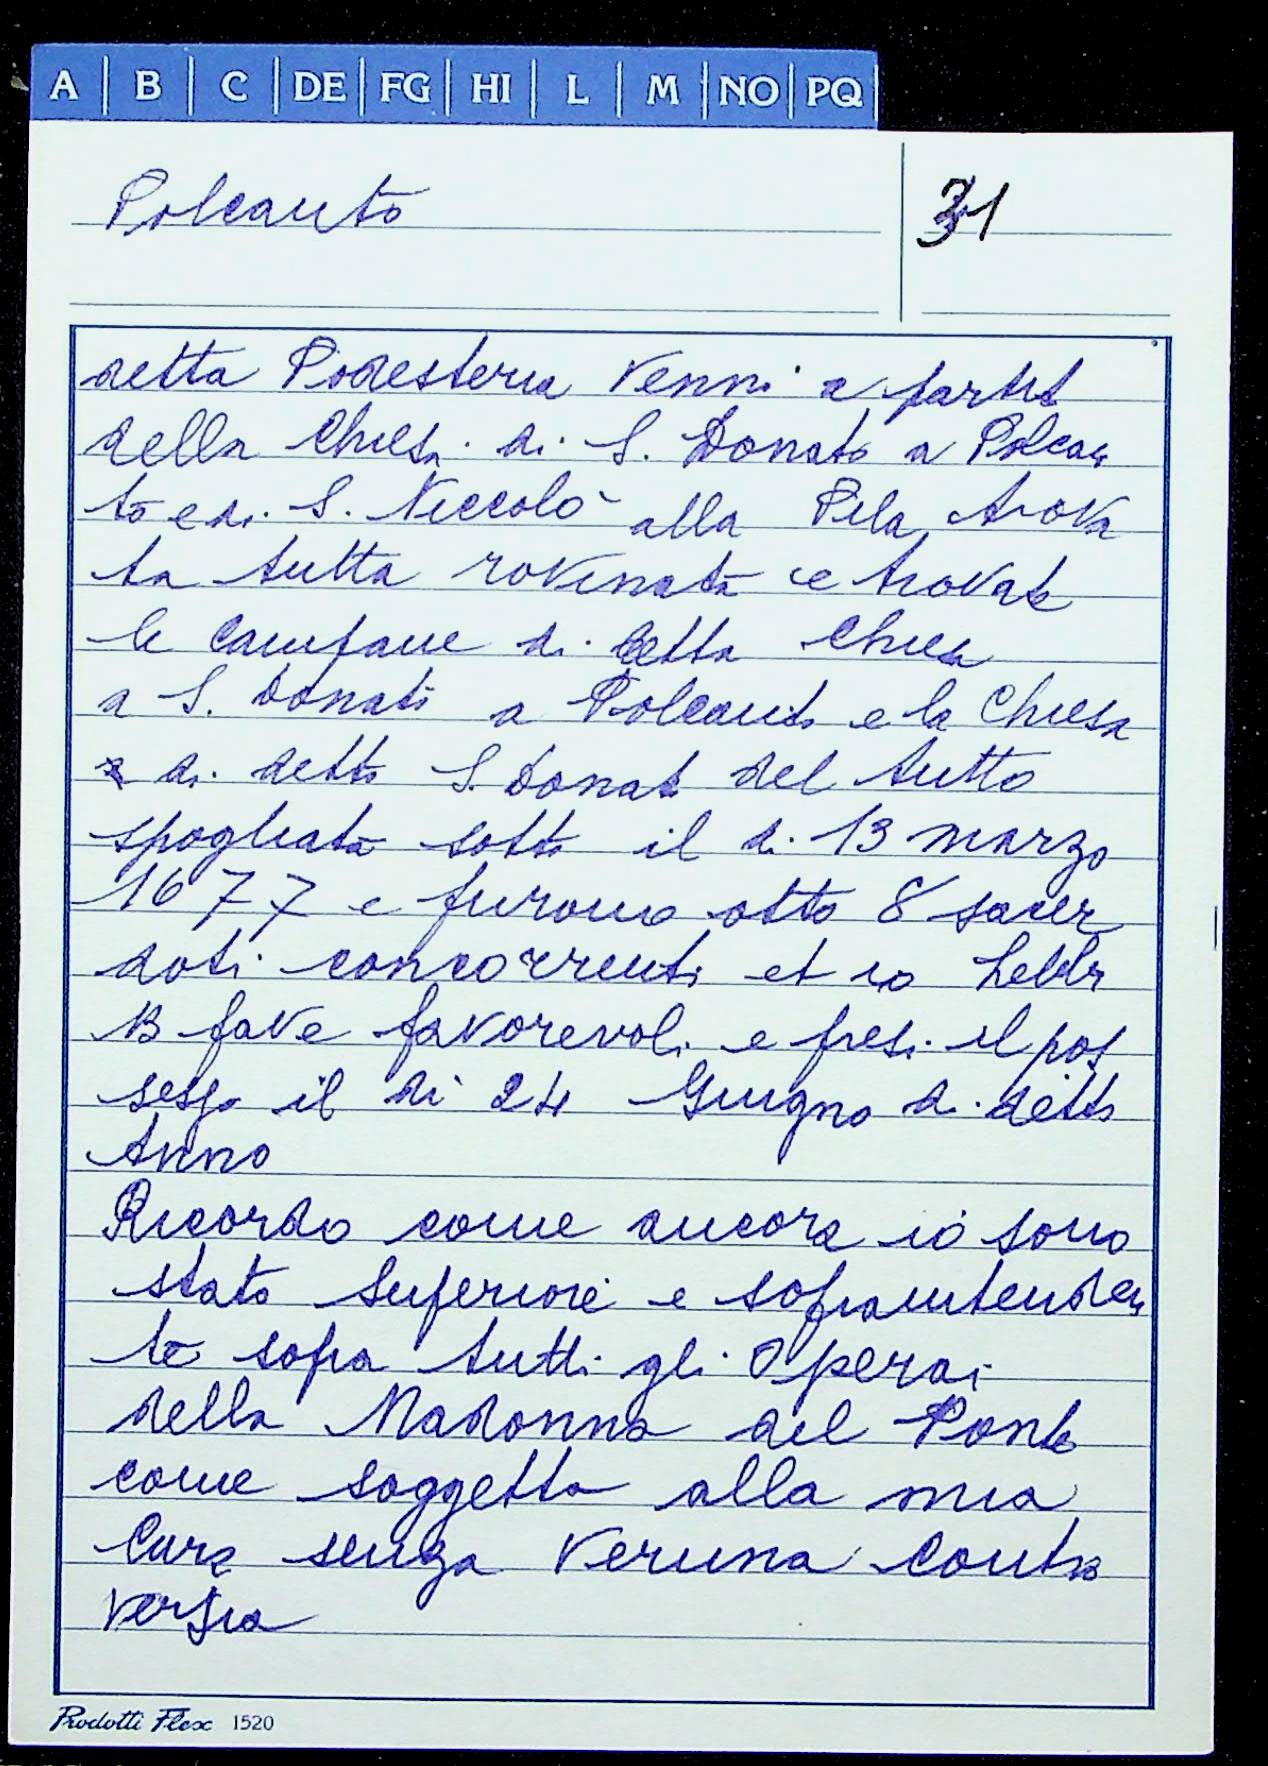 A B C DE FG HI L M NO PQ
Polcanto
31
detta Podesteria Venni a partit
della Chiesa di S. Donato a Polcan
to e di S. Niccolò alla Pila trova
ta tutta rovinata e trovate
le Campane di detta Chiesa
a S. Donato a Polcanto e la Chiesa
di detto S. Donato del tutto
spogliata sotto il di 13 marzo
1677 e furono otto 8 sacer
doti concorrenti et io hebbi
13 fave favorevoli e presi il pos
sesso il dì 24 Giugno di detto
Anno
Ricordo come ancora io sono
stato Superiore e sopraintenden
te sopra tutti gli Operai
della Madonna del Ponte
come soggetta alla mia
Cura senza Veruna Contro
versia
Prodotti Flex 1520